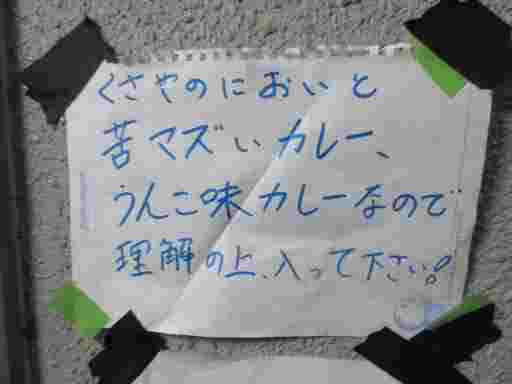 くさやのにおいと
苦マズいカレー、
うんこ味カレーなので
理解の上、入って下さい!